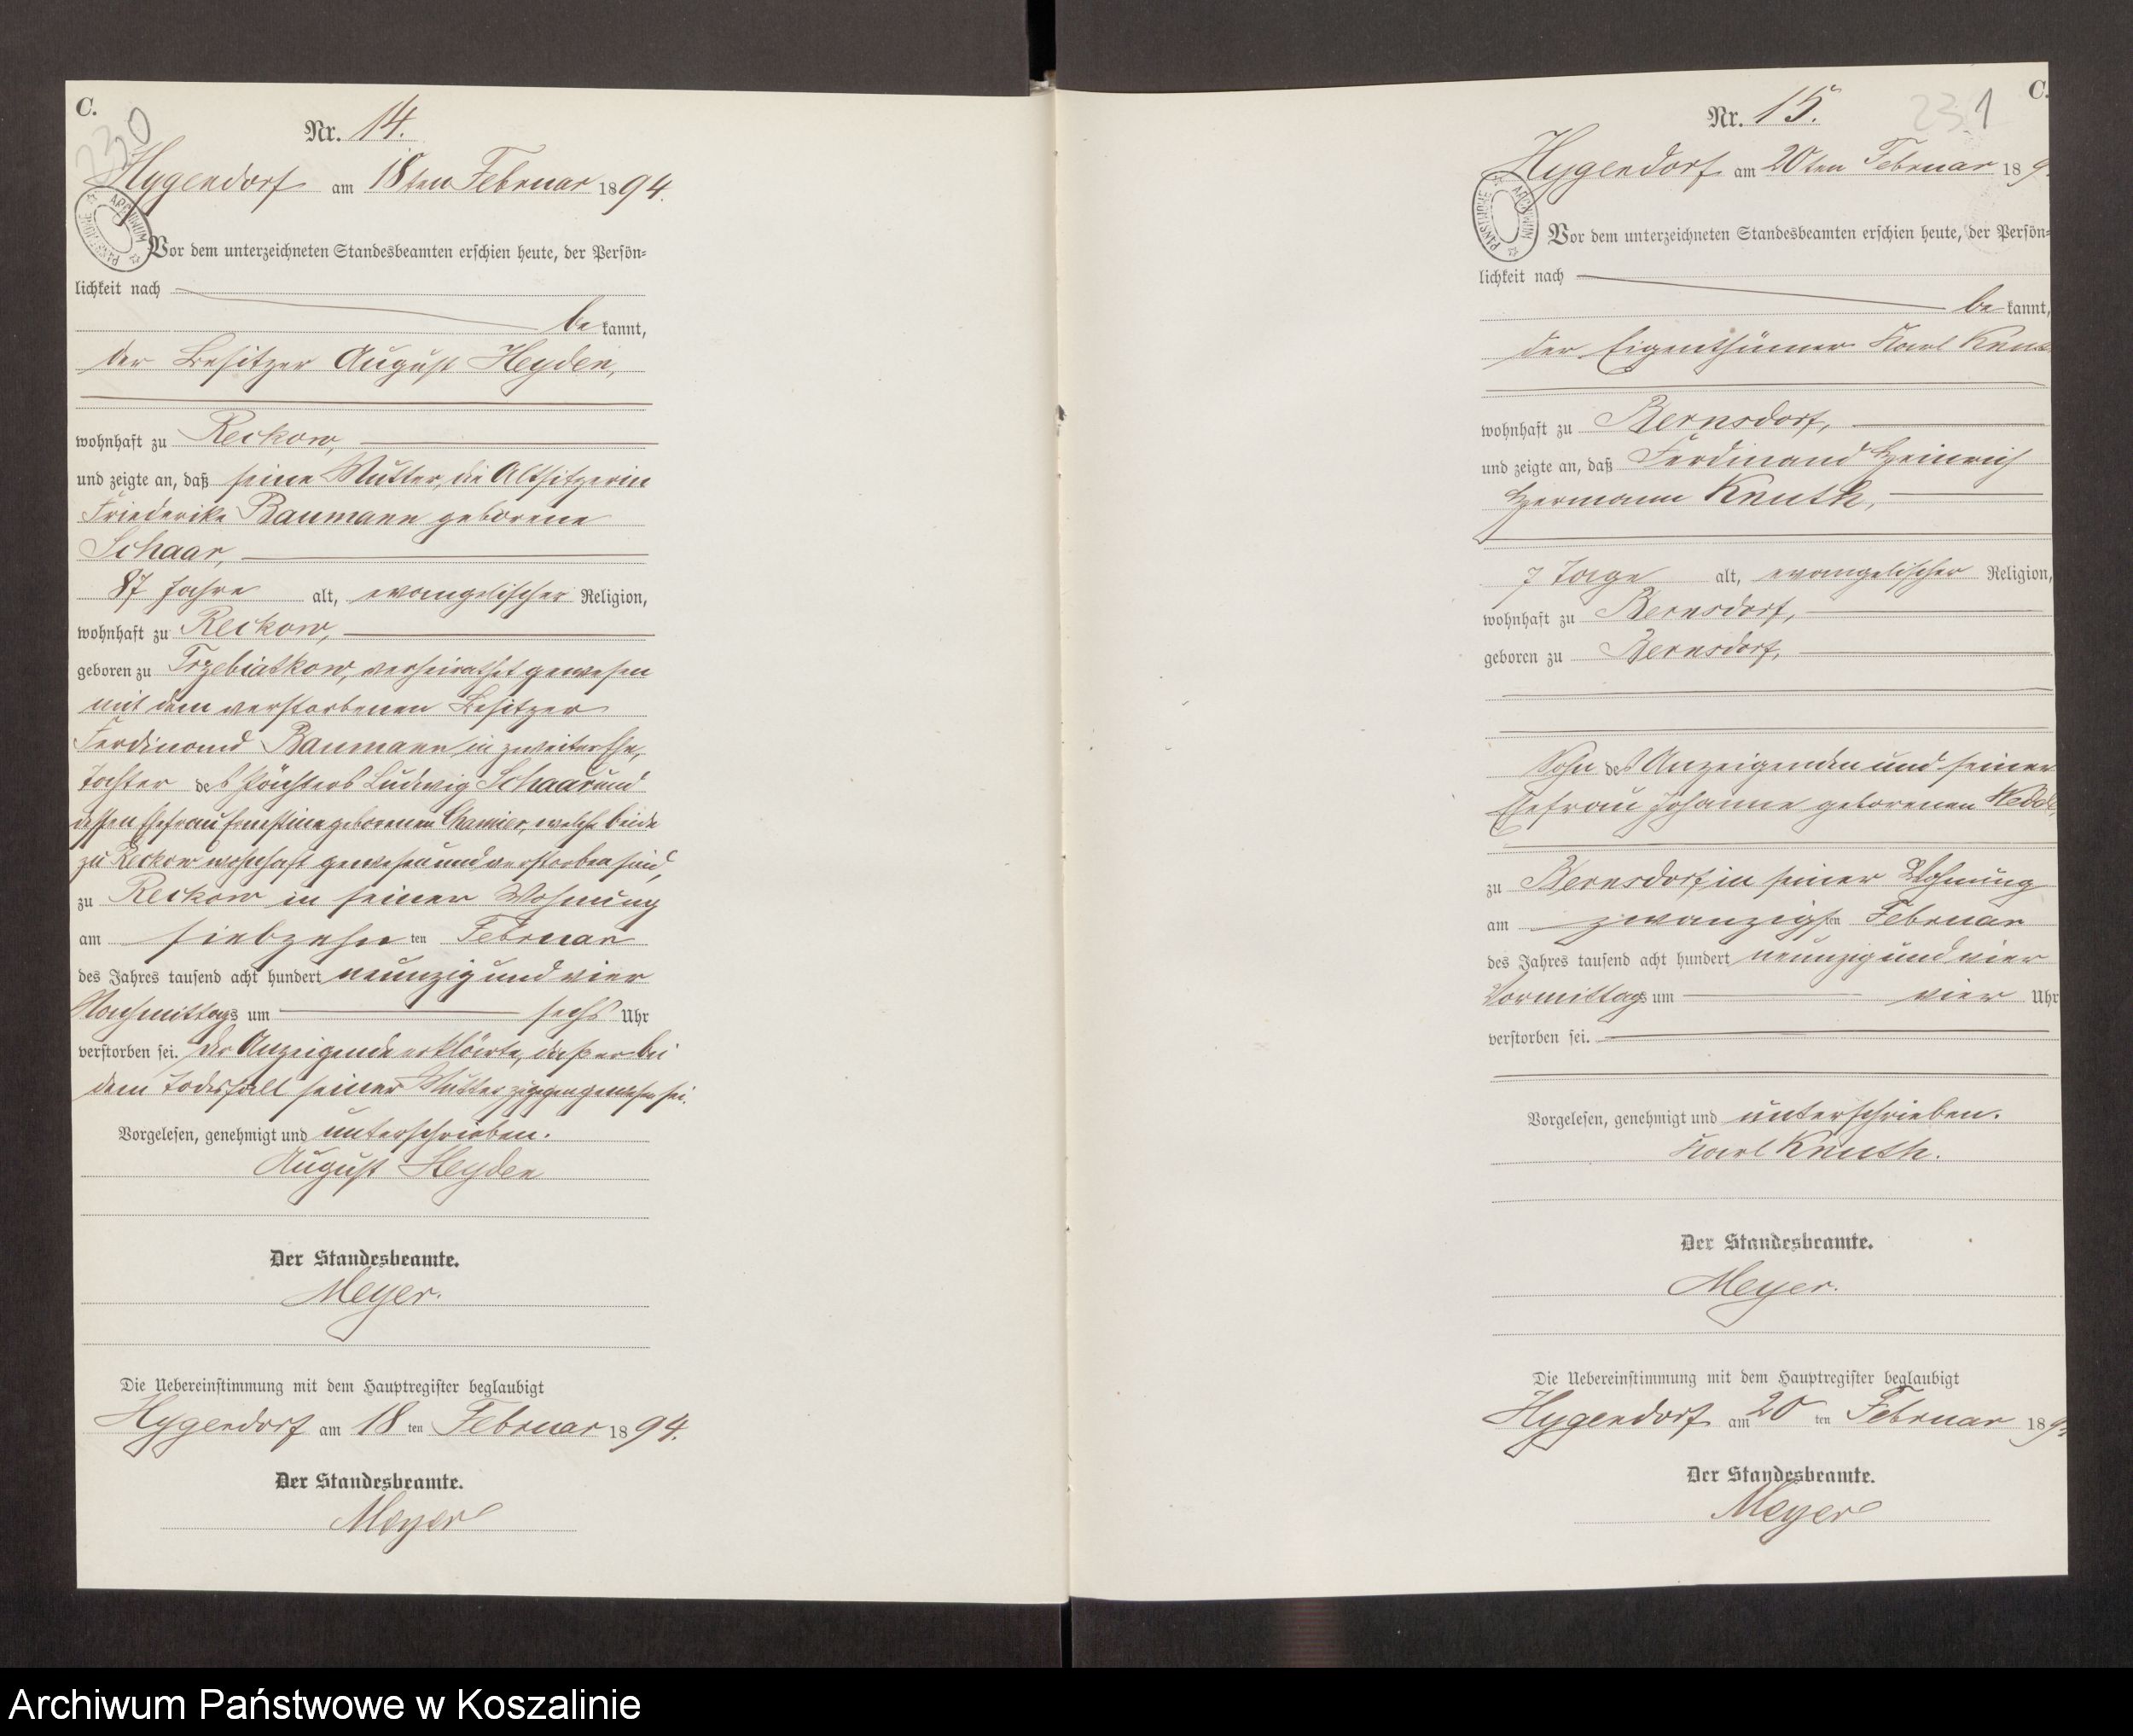 C.
230
Nr. 14.
Hygendorf am 18ten Februar 1894.
ARCHIWUM PAŃSTWOWE
Vor dem unterzeichneten Standesbeamten erschien heute, der Persön-
lichkeit nach
bekannt,
der Besitzer August Heyden,
wohnhaft zu Reckow,
und zeigte an, daß seine Mutter, die Altsitzerin
Friederike Baumann geborene
Schaar,
87 Jahre alt, evangelischer Religion,
wohnhaft zu Reckow,
geboren zu Trzebiatkow, verheirathet gewesen
mit dem verstorbenen Besitzer
Ferdinand Baumann in zweiter Ehe,
Tochter des Pächters Ludwig Schaar und
dessen Ehefrau Ernestine geborenen Chamier, welche beide
zu Reckow wohnhaft gewesen und verstorben sind,
zu Reckow in seiner Wohnung
am siebzehnten Februar
des Jahres tausend acht hundert neunzig und vier
Nachmittags um sechs Uhr
verstorben sei. Der Anzeigende erklärte, daß er bei
dem Todesfall seiner Mutter zugegen gewesen sei.
Vorgelesen, genehmigt und unterschrieben.
August Heyden
Der Standesbeamte.
Meyer.
Die Uebereinstimmung mit dem Hauptregister beglaubigt
Hygendorf am 18ten Februar 1894.
Der Standesbeamte.
Meyer
C.
231
Nr. 15.
Hygendorf am 20ten Februar 189
ARCHIWUM PAŃSTWOWE
Vor dem unterzeichneten Standesbeamten erschien heute, der Persön-
lichkeit nach
bekannt,
der Eigenthümer Karl Knu
wohnhaft zu Bernsdorf,
und zeigte an, daß Ferdinand Heinrich
Hermann Knuth,
7 Tage alt, evangelischer Religion,
wohnhaft zu Bernsdorf,
geboren zu Bernsdorf,
Sohn des Anzeigenden und seiner
Ehefrau Johanne geborenen
zu Bernsdorf, in seiner Wohnung
am zwanzigsten Februar
des Jahres tausend acht hundert neunzig und vier
Vormittags um vier Uhr
verstorben sei.
Vorgelesen, genehmigt und unterschrieben.
Karl Knuth.
Der Standesbeamte.
Meyer.
Die Uebereinstimmung mit dem Hauptregister beglaubigt
Hygendorf am 20ten Februar 189
Der Standesbeamte.
Meyer
Archiwum Państwowe w Koszalinie